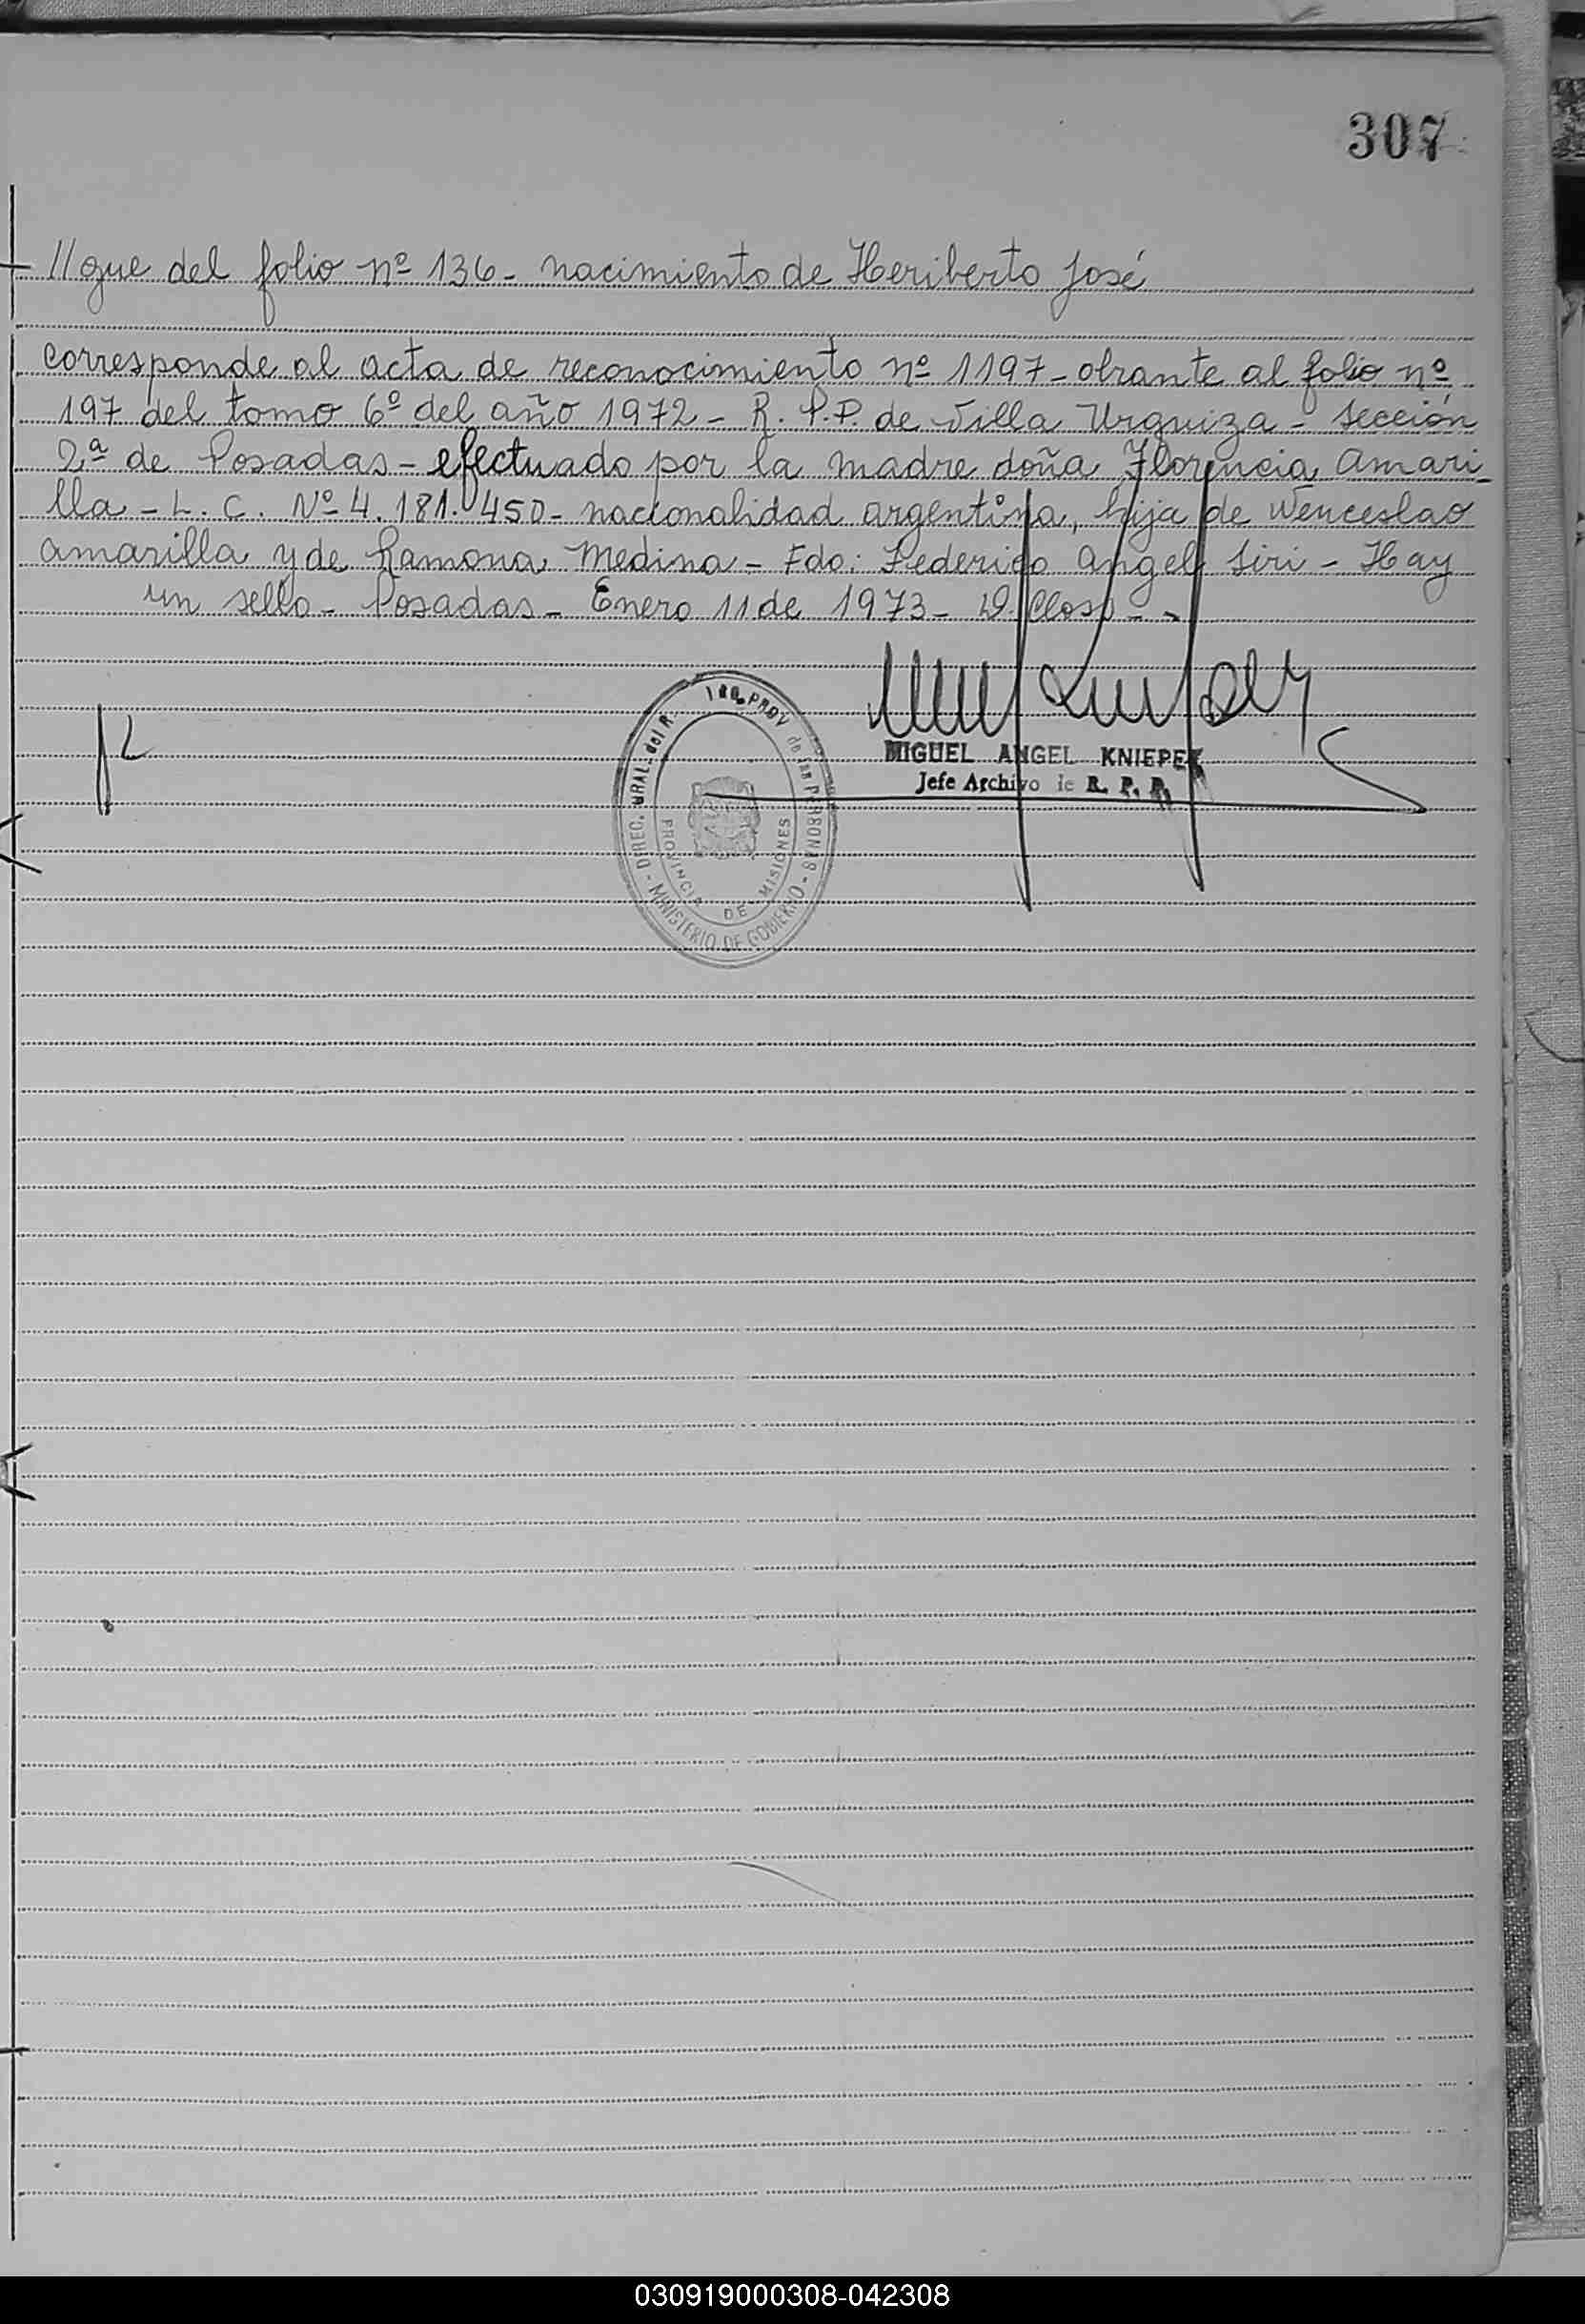 307
//gue del folio nº 136- nacimiento de Heriberto José
corresponde al acta de reconocimiento nº 1197- obrante al folio nº
197 del tomo 6º del año 1972- R.P.P. de Villa Urquiza- Sección
2ª de Posadas- efectuado por la madre doña Florencia Amari-
lla- L.C. Nº 4.181.450- nacionalidad argentina, hija de Wenceslao
Amarilla y de Ramona Medina- Fdo: Federico Angel Siri- Hay
un sello- Posadas- Enero 11 de 1973- D. Closs--
MIGUEL ANGEL KNIEPER
Jefe Archivo de R. P. P.
DIREC. GRAL. del R. PROV de las PERSONAS
MINISTERIO DE GOBIERNO
PROVINCIA DE MISIONES
030919000308-042308